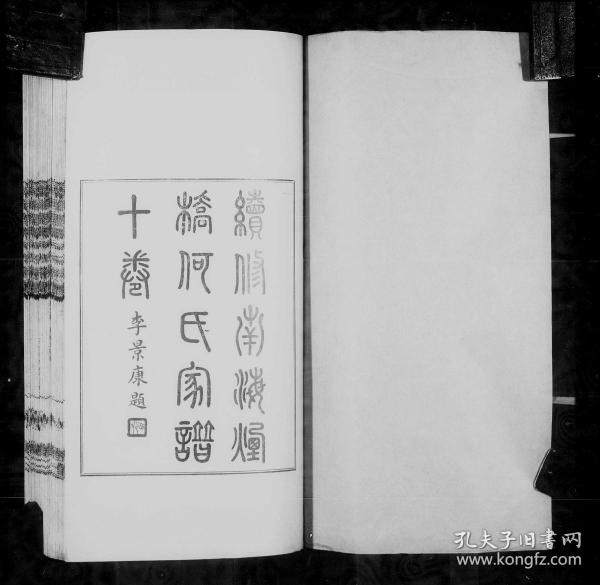 續修南海煙
橋何氏家譜
十卷
李景康題
孔夫子旧书网
www.kongfz.com